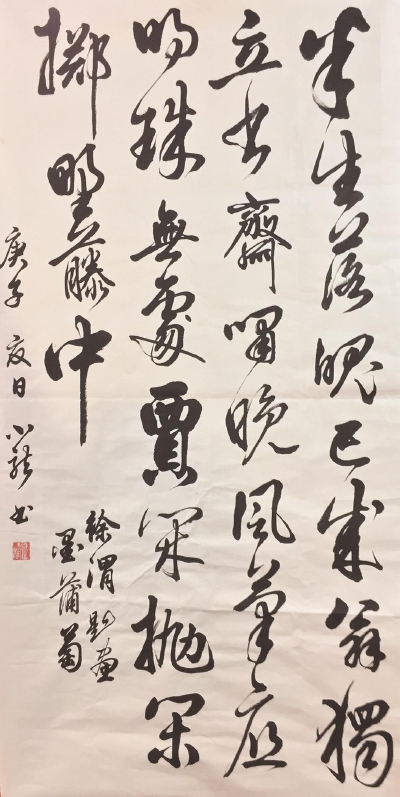 半生落魄已成翁獨
立書齋嘯晚風筆底
明珠無處賣閑拋閑
擲野藤中
徐渭題畫
墨蒲萄
庚子夏日小龍書